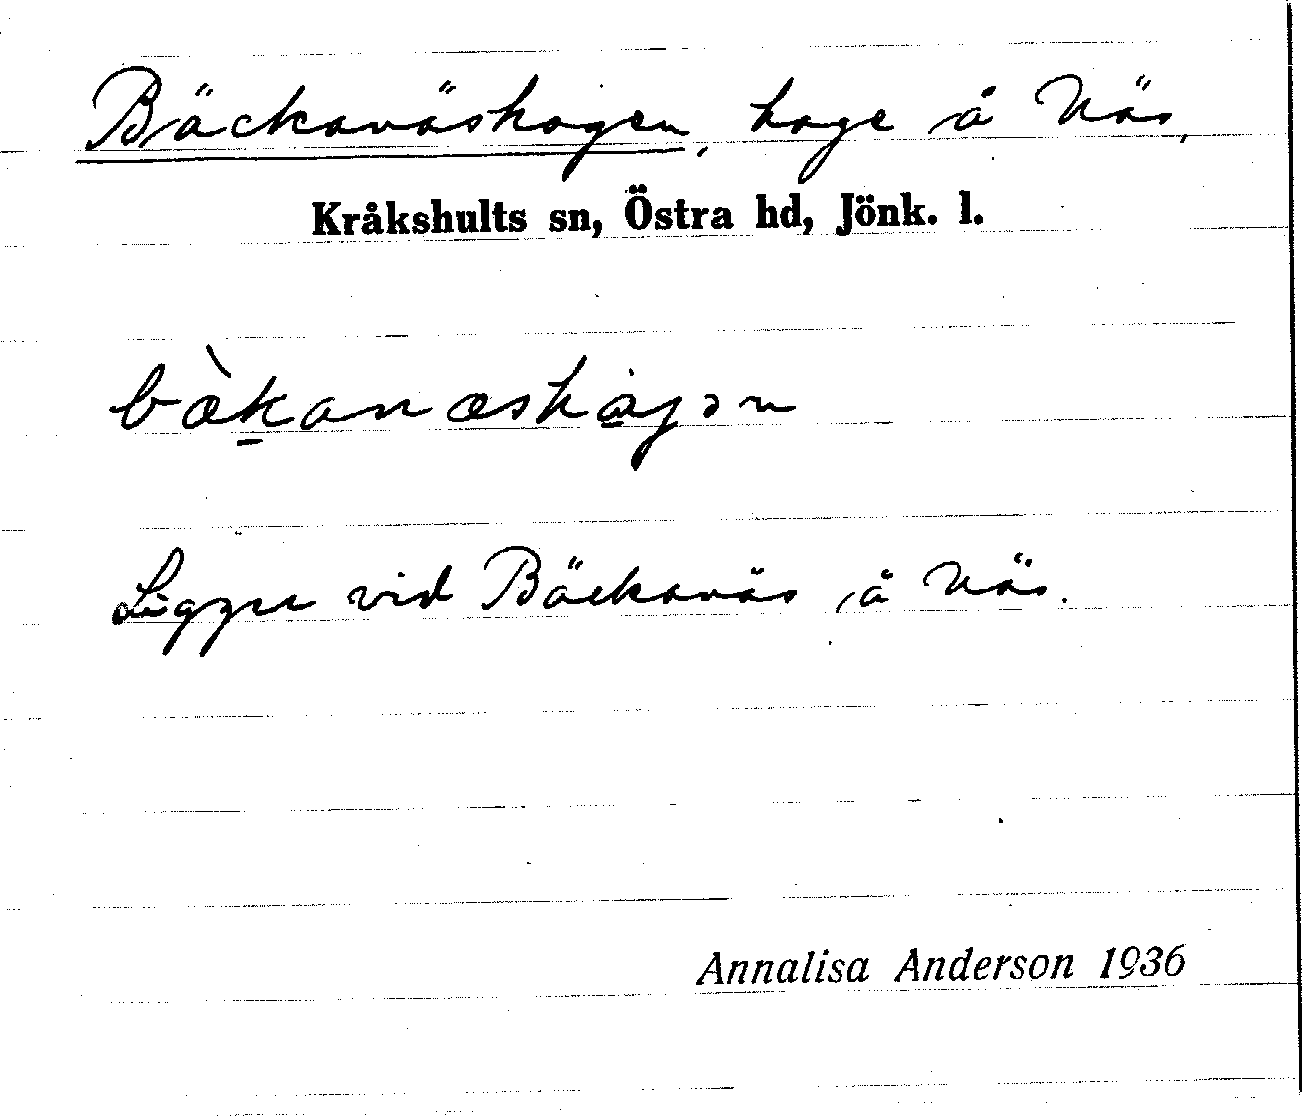 Bäckanäshagen, hage å Näs,
Kråkshults sn, Östra hd, Jönk. l.
bæ̀k̠anæshạgən
Ligger vid Bäckanäs å Näs.
Annalisa Anderson 1936